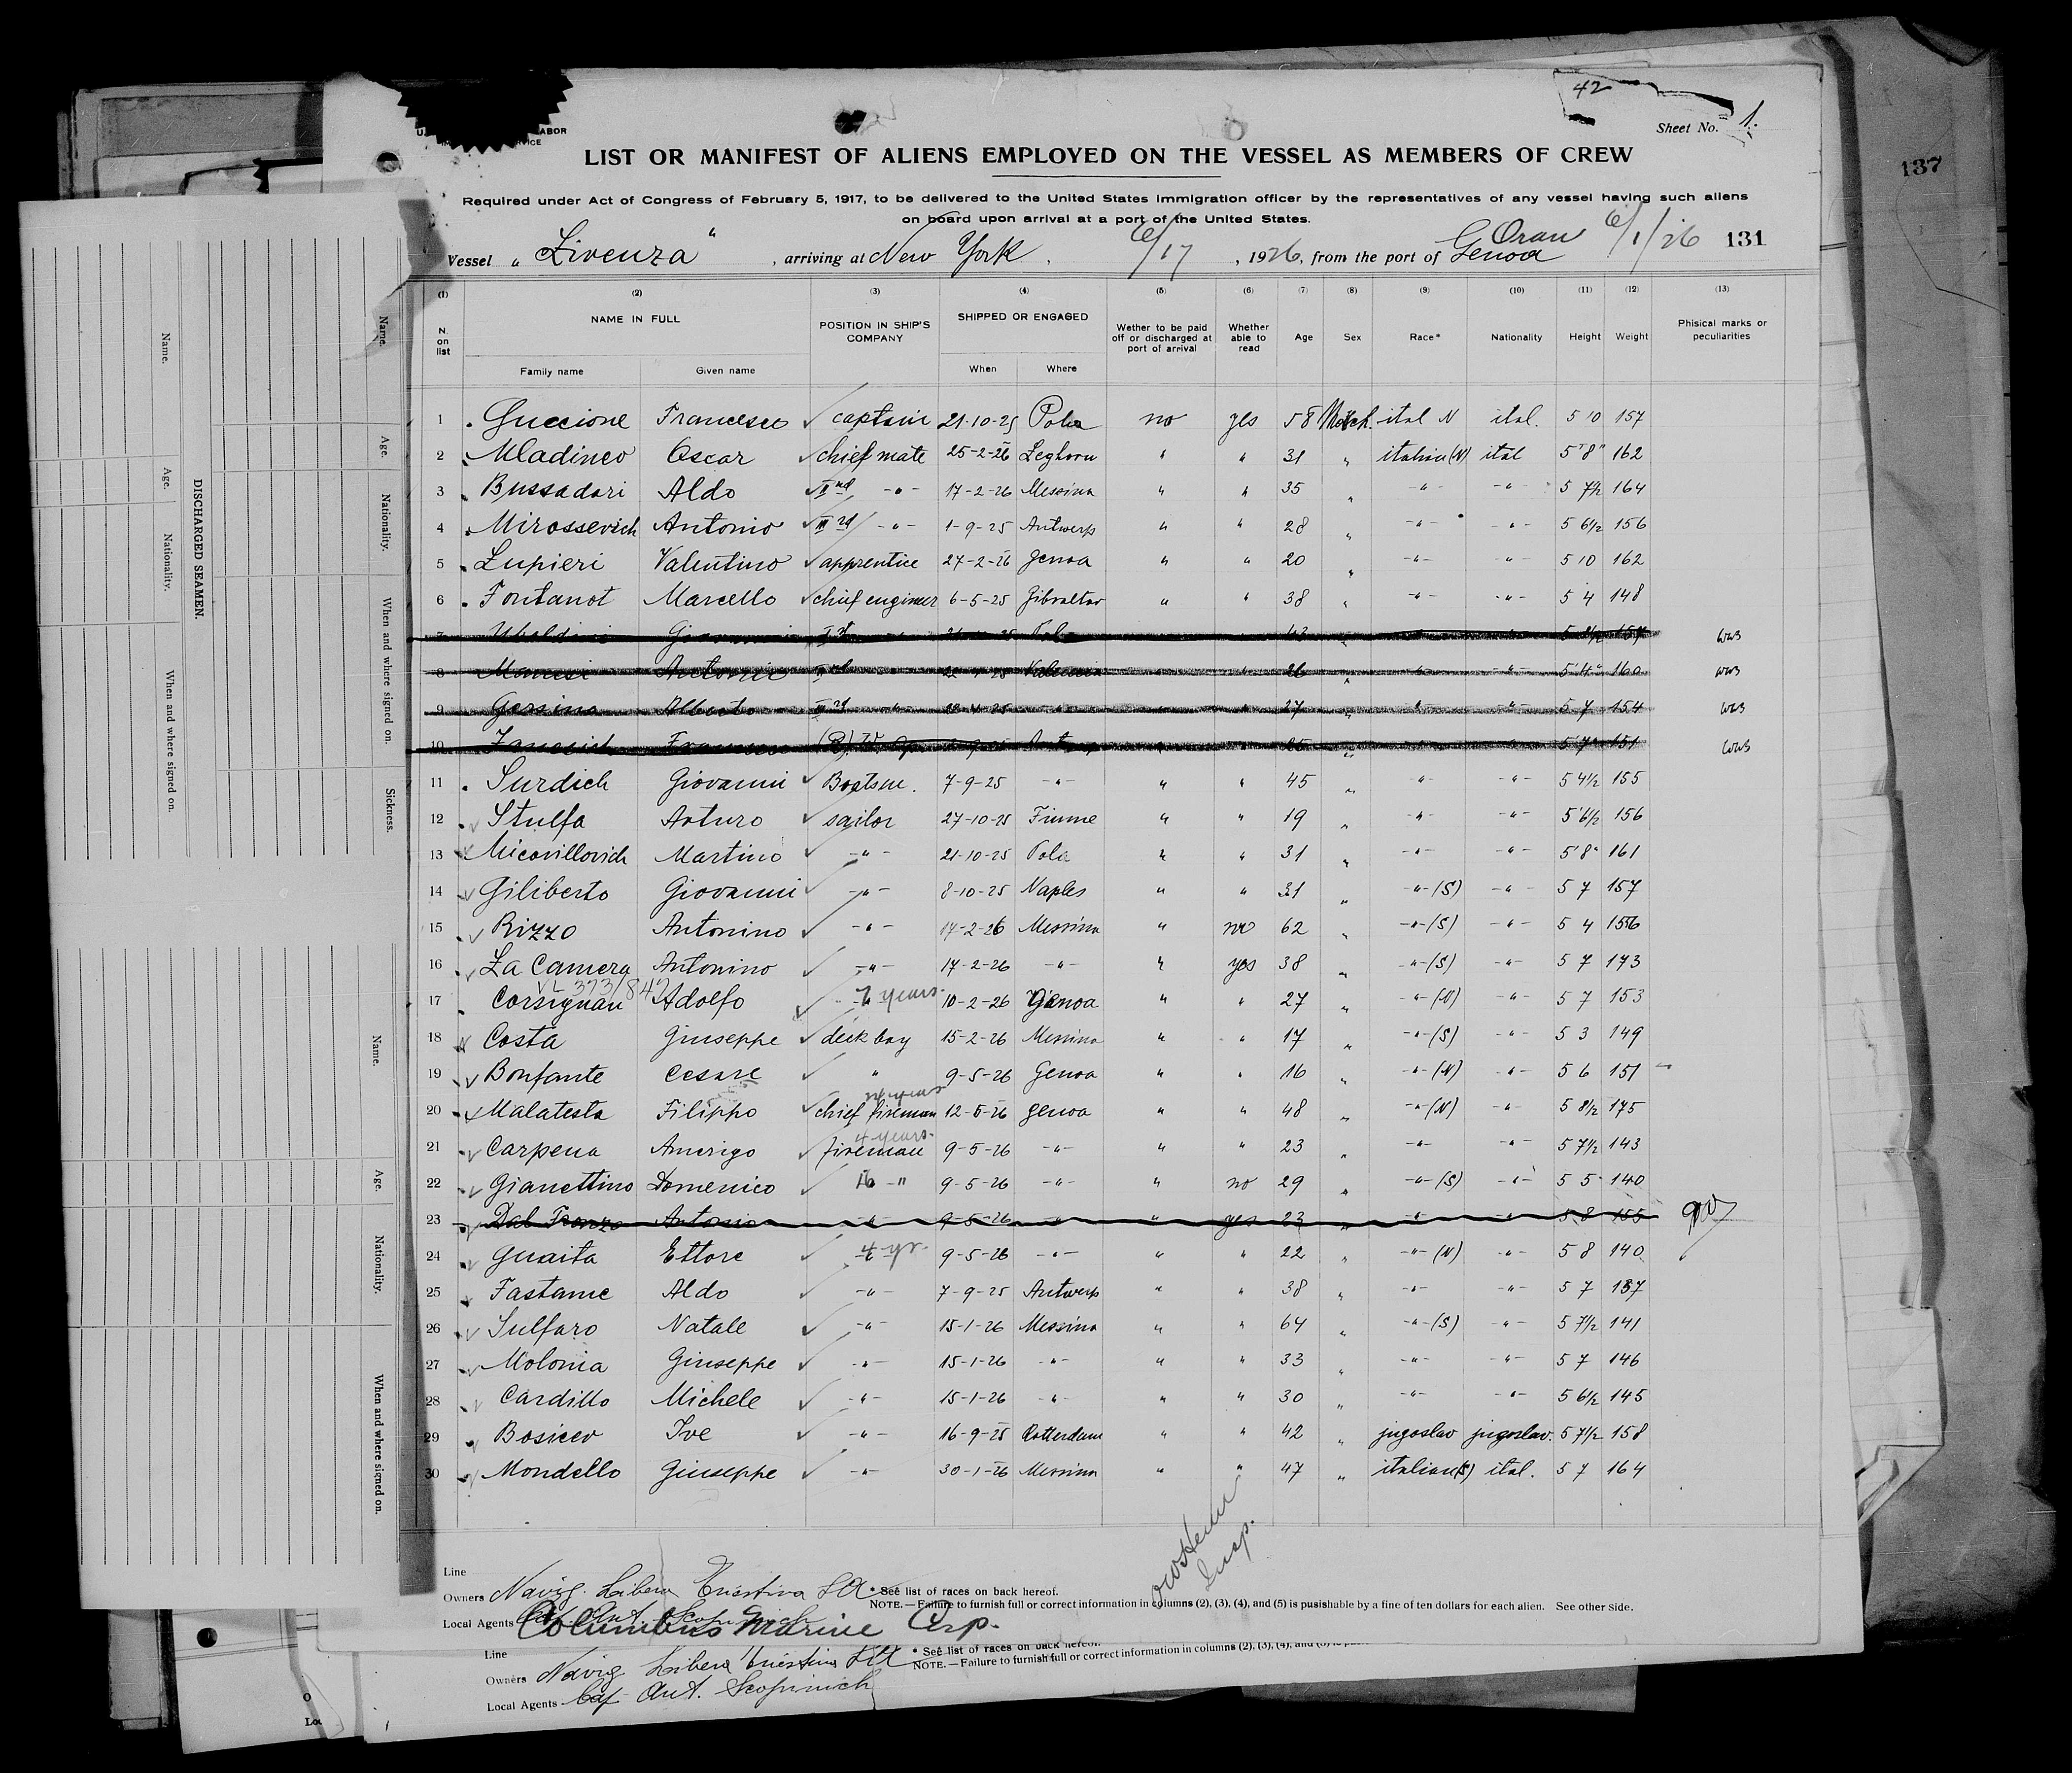 42
Sheet No. 1.
137
LIST OR MANIFEST OF ALIENS EMPLOYED ON THE VESSEL AS MEMBERS OF CREW
Required under Act of Congress of February 5, 1917, to be delivered to the United States immigration officer by the representatives of any vessel having such aliens
on board upon arrival at a port of the United States.
Vessel " Livenza " , arriving at New York . 6/17 , 1926, from the port of Genoa Oran 6/1/26 131
(1) (2) (3) (4) (5) (6) (7) (8) (9) (10) (11) (12) (13)
N. on list NAME IN FULL POSITION IN SHIP'S COMPANY SHIPPED OR ENGAGED Wether to be paid off or discharged at port of arrival Whether able to read Age Sex Race* Nationality Height Weight Phisical marks or peculiarities
Family name Given name When Where
1 Guccione Francesco captain 21-10-25 Pola no yes 58 ital N ital. 5 10 157
2 Mladineo Oscar chief mate 25-2-26 Leghorn " " 31 " italian (N) ital 5 8" 162
3 Bussadori Aldo IInd -"- 17-2-26 Messina " " 35 " -"- -"- 5 7½ 164
4 Mirossevich Antonio IIIrd -"- 1-9-25 Antwerp " " 28 " -"- -"- 5 6½ 156
5 Lupieri Valentino apprentice 27-2-26 Genoa " " 20 " -"- -"- 5 10 162
6 Fontanot Marcello chief engineer 6-5-25 Gibraltar " " 38 " -"- -"- 5 4 148
7 Ubaldini Pola 43 WWB
8 26 " -"- 5'4" 160 WWB
9 Alberto IIIrd -"- 27 " -"- 5 7 154 WWB
10 Francesco 5'7" 151 WWB
11 Surdich Giovanni Boatsm. 7-9-25 -"- " " 45 " -"- -"- 5 4½ 155
12 Stulfa Arturo sailor 27-10-25 Fiume " " 19 " -"- -"- 5'6½ 156
13 Micovillovich Martino -"- 21-10-25 Pola " " 31 " -"- -"- 5'8" 161
14 Giliberto Giovanni -"- 8-10-25 Naples " " 31 " -"-(S) -"- 5 7 157
15 Rizzo Antonino -"- 17-2-26 Messina " no 62 " -"-(S) -"- 5 4 156
16 La Camera Antonino -"- 17-2-26 -"- " yes 38 " -"-(S) -"- 5 7 173
VL 373/847
17 Corsignani Adolfo 7 years 10-2-26 Genoa " " 27 " -"-(N) -"- 5 7 153
18 Costa Giuseppe deck boy 15-2-26 Messina " " 17 " -"-(S) -"- 5 3 149
19 Bonfante Cesare " 9-5-26 Genoa " " 16 " -"-(N) -"- 5 6 151
20 Malatesta Filippo chief fireman 12-5-26 genoa " " 48 " -"-(N) -"- 5 8½ 175
4 years
21 Carpena Amerigo fireman 9-5-26 -"- " " 23 " -"- -"- 5 7½ 143
22 Gianettino Domenico 16 -"- 9-5-26 -"- " no 29 " -"-(S) -"- 5 5 140
23 Dal Fronzo Antonio -"- 9-5-26 -"- " yes 23 " -"- -"- 5 8 155
24 Guaita Ettore 4 yr. 9-5-26 -"- " " 22 " -"-(N) -"- 5 8 140
25 Fastame Aldo -"- 7-9-25 Antwerp " " 38 " -"- -"- 5 7 137
26 Sulfaro Natale -"- 15-1-26 Messina " " 64 " -"-(S) -"- 5 7½ 141
27 Molonia Giuseppe -"- 15-1-26 -"- " " 33 " -"- -"- 5 7 146
28 Cardillo Michele -"- 15-1-26 -"- " " 30 " -"- -"- 5 6½ 145
29 Bosicev Ive -"- 16-9-25 Rotterdam " " 42 " jugoslav jugoslav. 5 7½ 158
30 Mondello Giuseppe -"- 30-1-26 Messina " " 47 " italian(S) ital. 5 7 164
Insp.
Line
Owners Navig. Libera Triestina SA
* See list of races on back hereof.
NOTE.—Failure to furnish full or correct information in columns (2), (3), (4), and (5) is pusishable by a fine of ten dollars for each alien. See other side.
Local Agents Cap. Ant. Scopinich
Columbus Marine Corp.
Line
* See list of races on back hereof.
Owners Navig Libera Triestina SA
NOTE.—Failure to furnish full or correct information in columns (2), (3), (4), and (5) is
Local Agents Cap Ant. Scopinich
DISCHARGED SEAMEN.
Name.
Age.
Nationality.
When and where signed on.
Name.
Age.
Nationality.
When and where signed on.
Sickness.
Name.
Age.
Nationality.
When and where signed on.